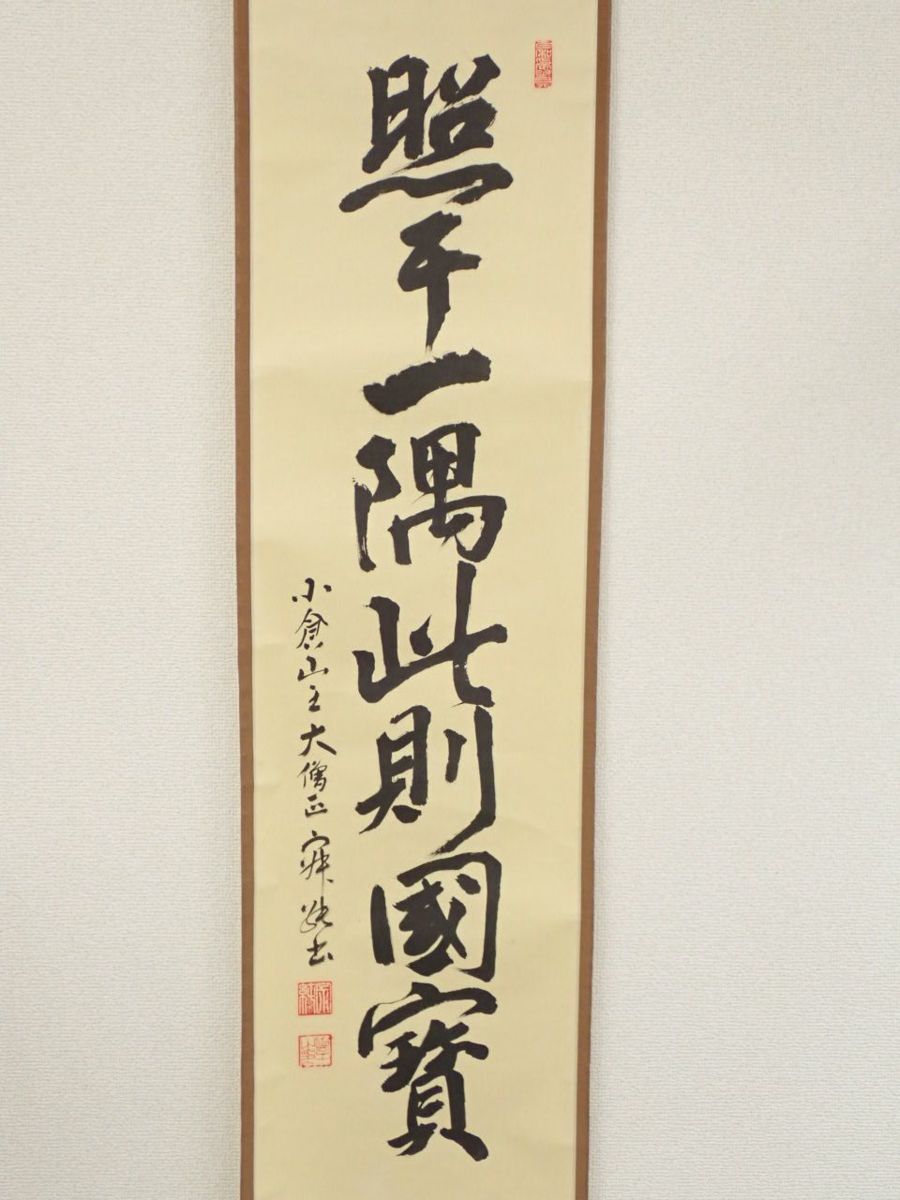 照于一隅此則國寳
小倉山主大僧正寂聴書